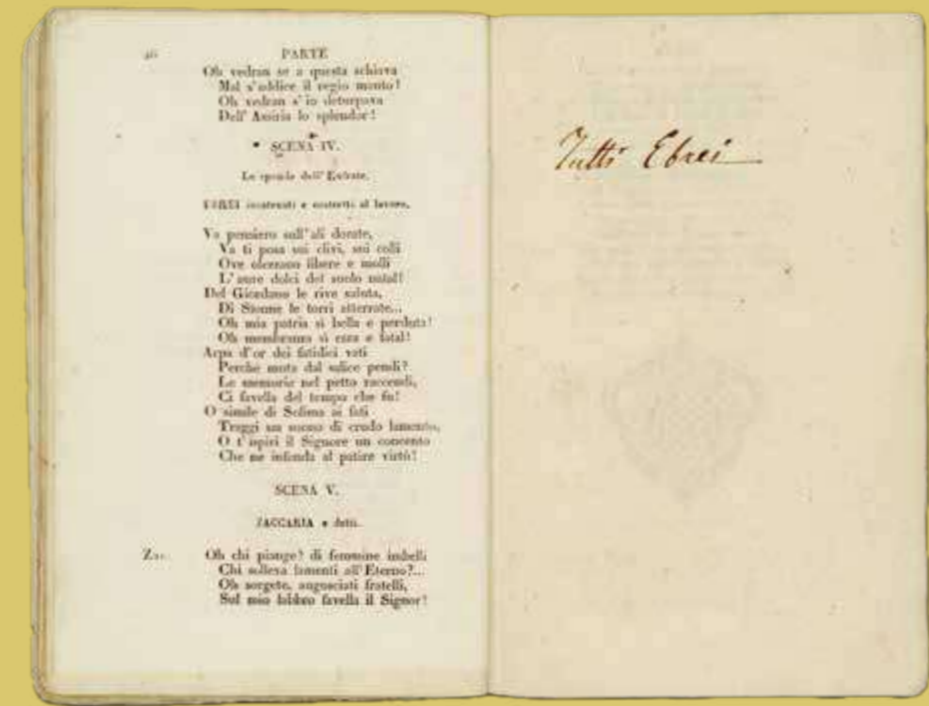 26 PARTE
Oh vedran se a questa schiava
Mal s'addice il regio manto!
Oh vedran s'io deturpava
Dell' Assiria lo splendor!
SCENA IV.
Le sponde dell' Eufrate.
EBREI incatenati e costretti al lavoro.
Va pensiero sull'ali dorate,
Va ti posa sui clivi, sui colli
Ove olezzano libere e molli
L'aure dolci del suolo natal!
Del Giordano le rive saluta,
Di Sionne le torri atterrate...
Oh mia patria sì bella e perduta!
Oh membranza sì cara e fatal!
Arpa d'or dei fatidici vati
Perchè muta dal salice pendi?
Le memorie nel petto raccendi,
Ci favella del tempo che fu!
O simile di Solima ai fati
Traggi un suono di crudo lamento,
O t'ispiri il Signore un concento
Che ne infonda al patire virtù!
SCENA V.
ZACCARIA e detti.
Zac. Oh chi piange? di femmine imbelli
Chi solleva lamenti all'Eterno?...
Oh sorgete, angosciati fratelli,
Sul mio labbro favella il Signor!
Tutti Ebrei